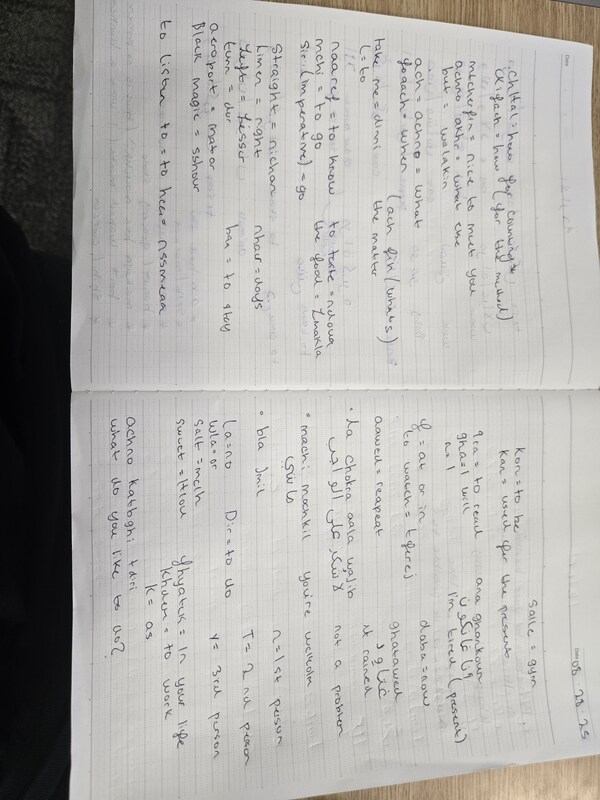 chhal = how for counting
kifach = how (for the method)
mtcherfin = nice to meet you
achno akhr = what else
but = walakin
ach = achno = what
foqach = when (ach fik/whats the matter)
take me = dini
l = to
naaref = to know
to taste = ndouq
mchi = to go
the food = lmakla
sir (imperative) = go
Straight = nichan
limen = right
nhar = days
left = lesser
turn = dor
ba9 = to stay
aeroport = mator
Black magic = sshour
to listen to = to hear = nssmeaa
08 28 25
Salle = gym
kon = to be
kan = used for the present
qra = to read
gha = I will
ana ghankoun
n = I
I'm tired (present)
f = at or in
daba = now
to watch = tferej
aawed = reapeat
ghatawed
it rained
• La chokra aala wajib
لا شكر على الواجب
not a problem
• machi mochkil
you're welkolm
ماشي
n = 1st person
• bla jmil
T = 2nd person
la = no
Dir = to do
y = 3rd person
wla = or
salt = melh
fhyatek = in your life
sweet = Hlou
khdem = to work
k = as
achno katbghi tdiri
what do you like to do?